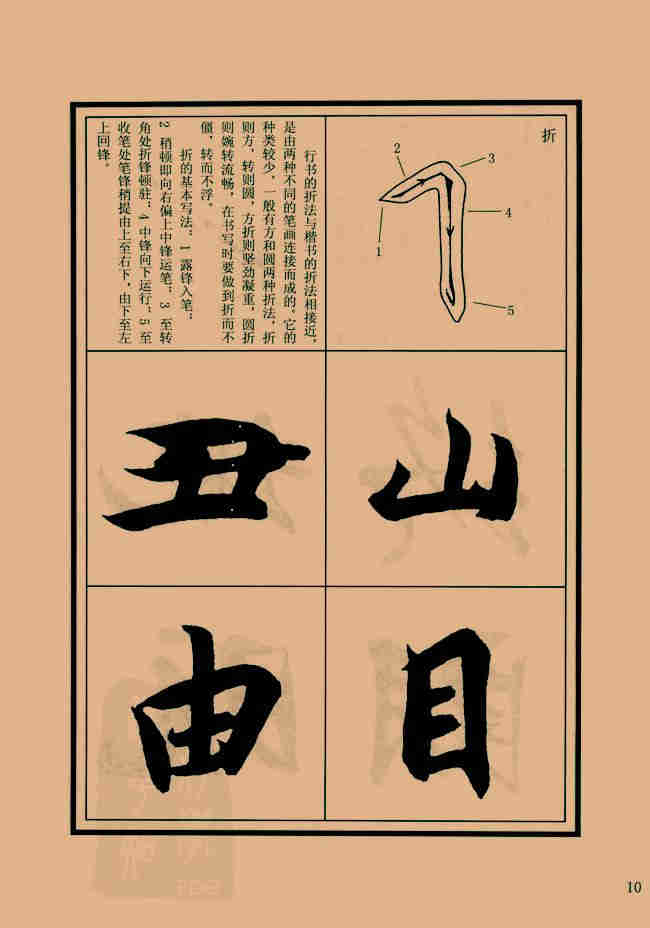 折
1
2
3
4
5
行书的折法与楷书的折法相接近,
是由两种不同的笔画连接而成的。它的
种类较少,一般有方和圆两种折法,折
则方,转则圆,方折则坚劲凝重,圆折
则婉转流畅,在书写时要做到折而不
僵,转而不浮。
折的基本写法:1 露锋入笔;
2 稍顿即向右偏上中锋运笔;3 至转
角处折锋顿驻;4 中锋向下运行;5 至
收笔处笔锋稍提由上至右下,由下至左
上回锋。
山
丑
目
由
10